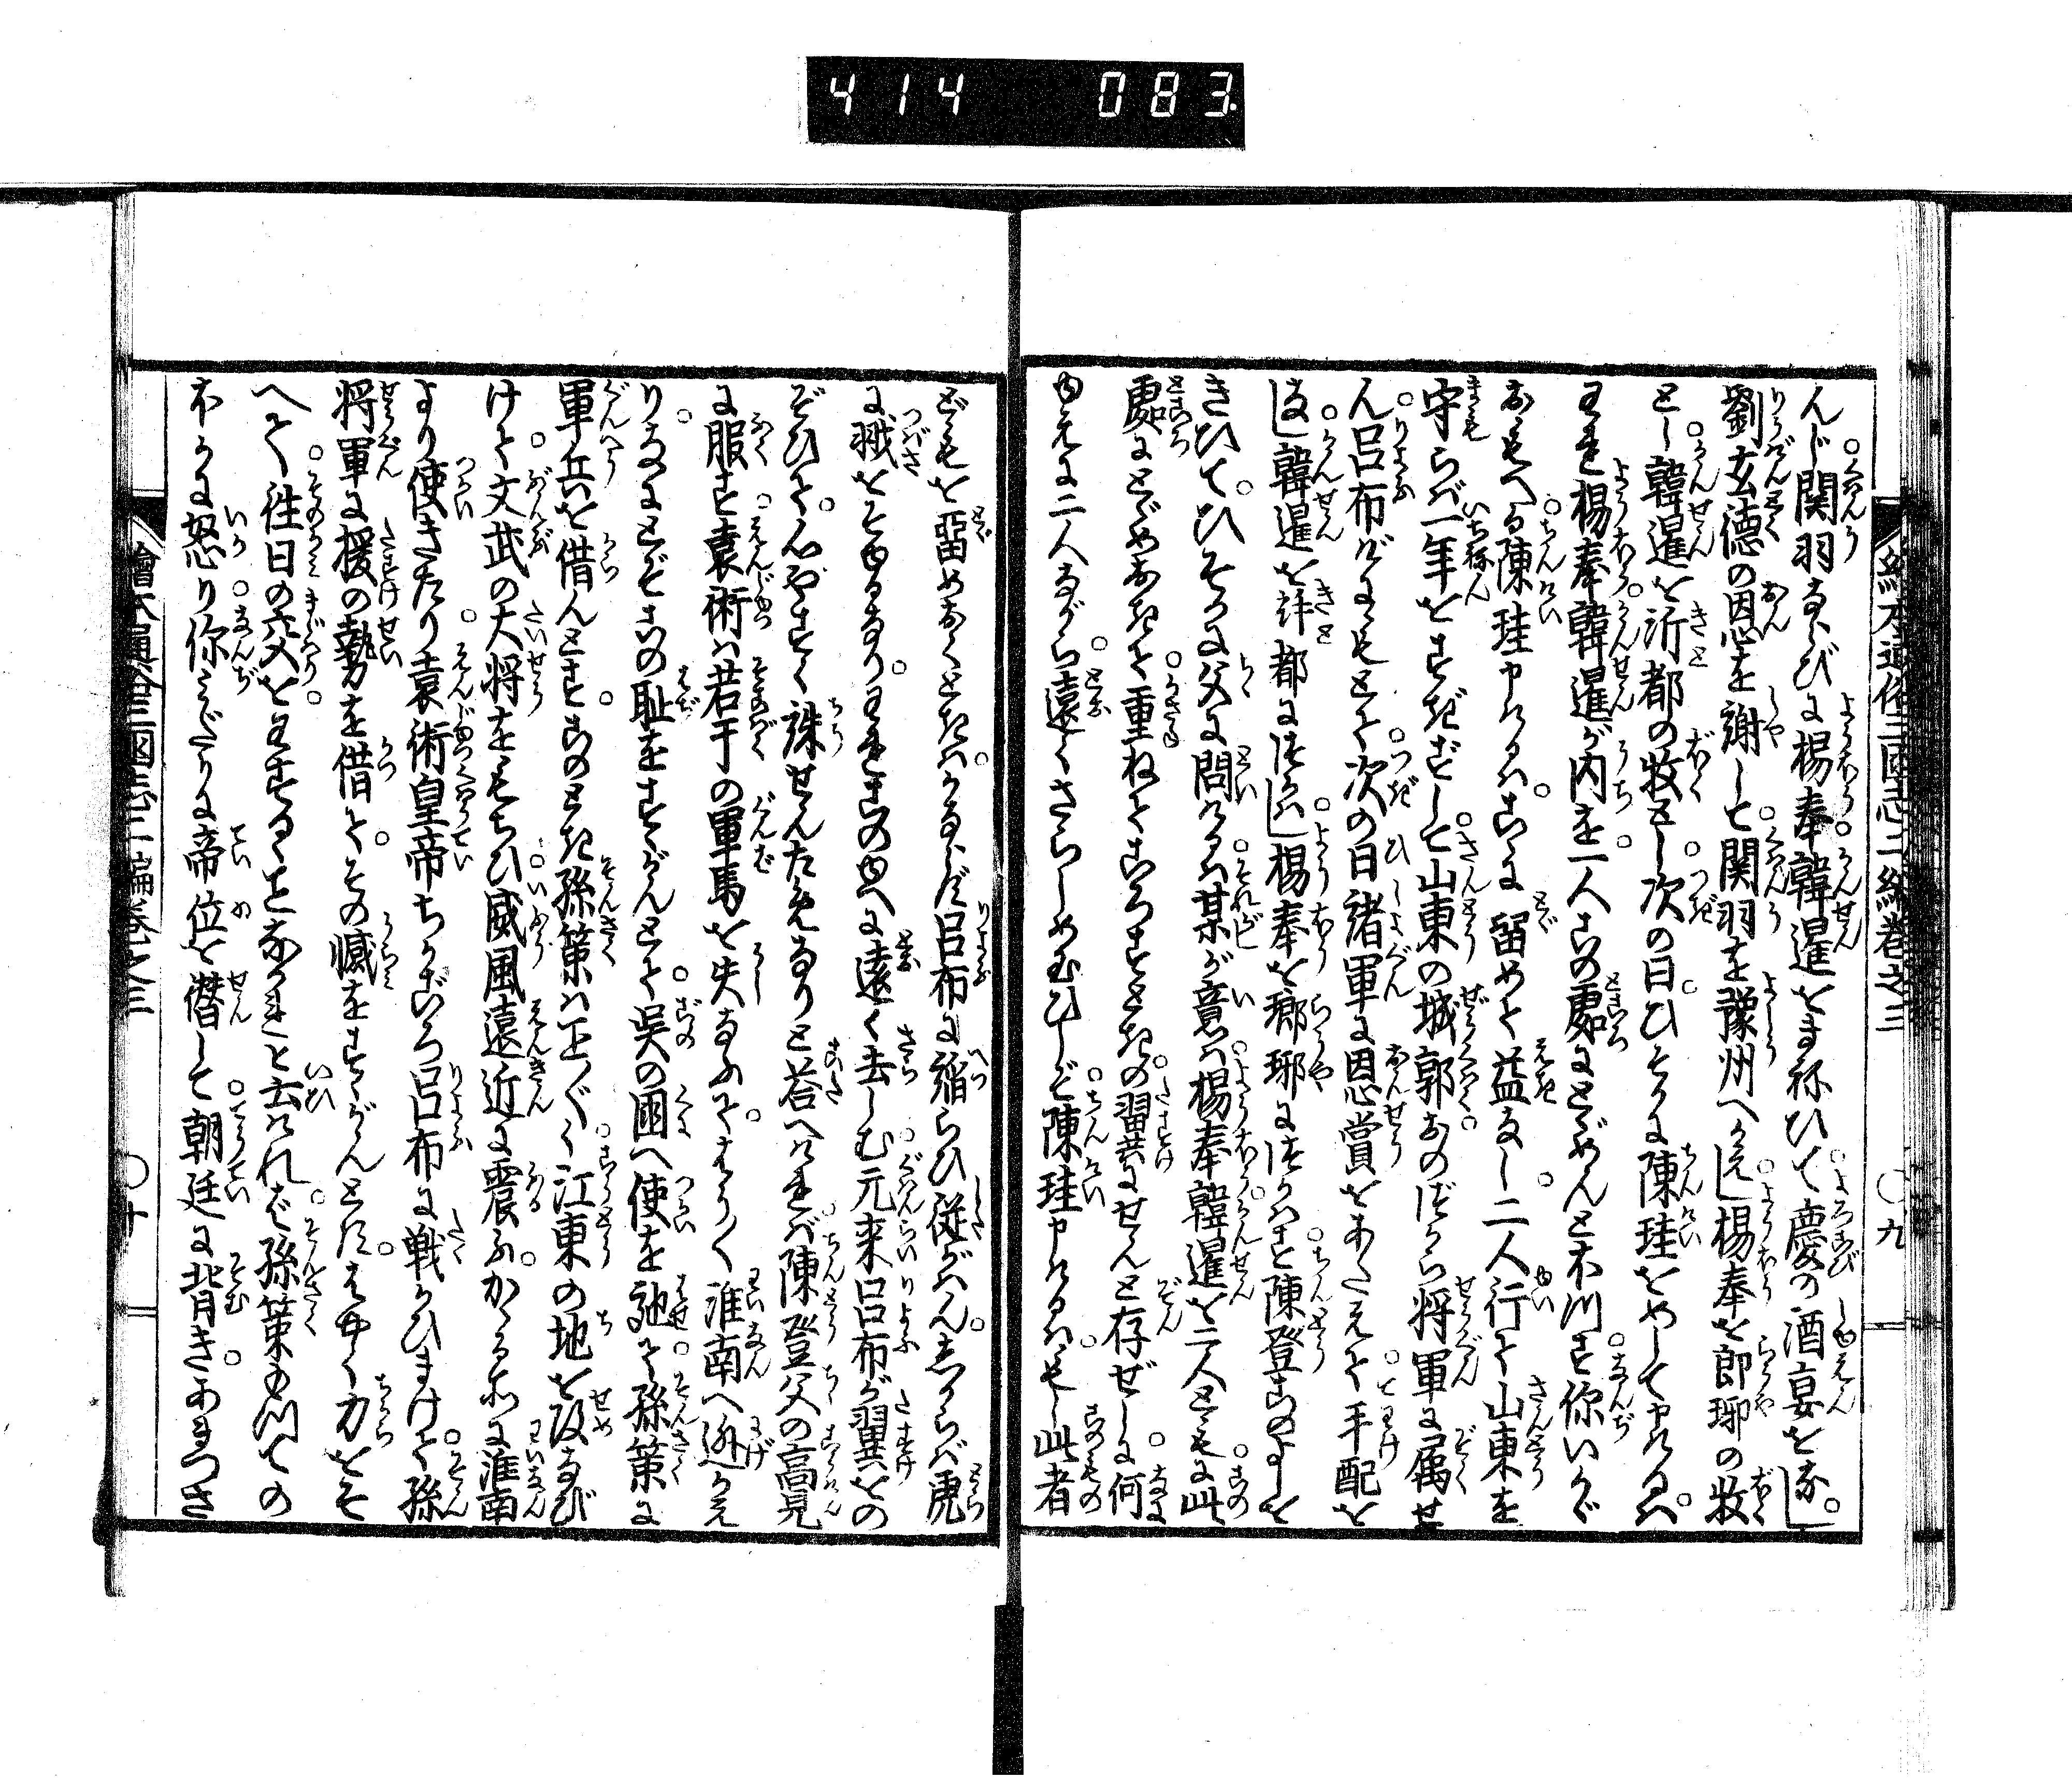 414 083
絵本通俗三国志二編巻之三 〇九
んじ関羽ならびに楊奉韓暹をまねひて慶の酒宴をなし。
劉玄徳の恩を謝して関羽を豫州へかへし楊奉を郎琊の牧
とし韓暹を沂都の牧とし次の日ひそかに陳珪をめして申けるハ
われ楊奉韓暹が内を一人この處にとゞめんと木川す你いかゞ
おもへる陳珪申けるハこゝに留めて益なし二人行て山東を
守らバ一年をすぎずして山東の城郭おのづから将軍に属せ
ん呂布げにもとて次の日諸軍に恩賞をあたえて手配を
なし韓暹を沂都につかハし楊奉を瑯琊につかハす陳登このよしを
きひて。ひそかに父に問けるハ某が意ハ楊奉韓暹を二人ともに此
處にとゞめおきて重ねてころすときの翼にせんと存ぜしに何
ゆえに二人ながら遠くさらしめ玉ひしぞ陳珪申けるハもし此者
どもを留めおくときハかならず呂布に諂らひ従がハんしからバ虎
に翅をそゆるなりわれこのゆへに遠く去しむ元来呂布が翼をの
ぞひて。心やすく誅せんためなりと荅へけれバ陳登父の高見
に服す袁術ハ若干の軍馬を失なふてはう〱淮南へ逃かえ
りなにとぞこの耻をすゝがんとて呉の国へ使を馳て孫策に
軍兵を借んとすこのとき孫策ハ正しく江東の地を攻なび
けて文武の大将をもちひ威風遠近に震ふかゝる所に淮南
より使きたり袁術皇帝ちかごろ呂布に戦かひまけて孫
将軍に援の勢を借てその憾をすゝがんとす。はやく力をそ
へて往日の交をわするゝことなかれと云けれバ孫策もつての
外に怒り你みだりに帝位を僭して朝廷に背きあまつさ
繪本通俗三國志二編巻之三 〇十